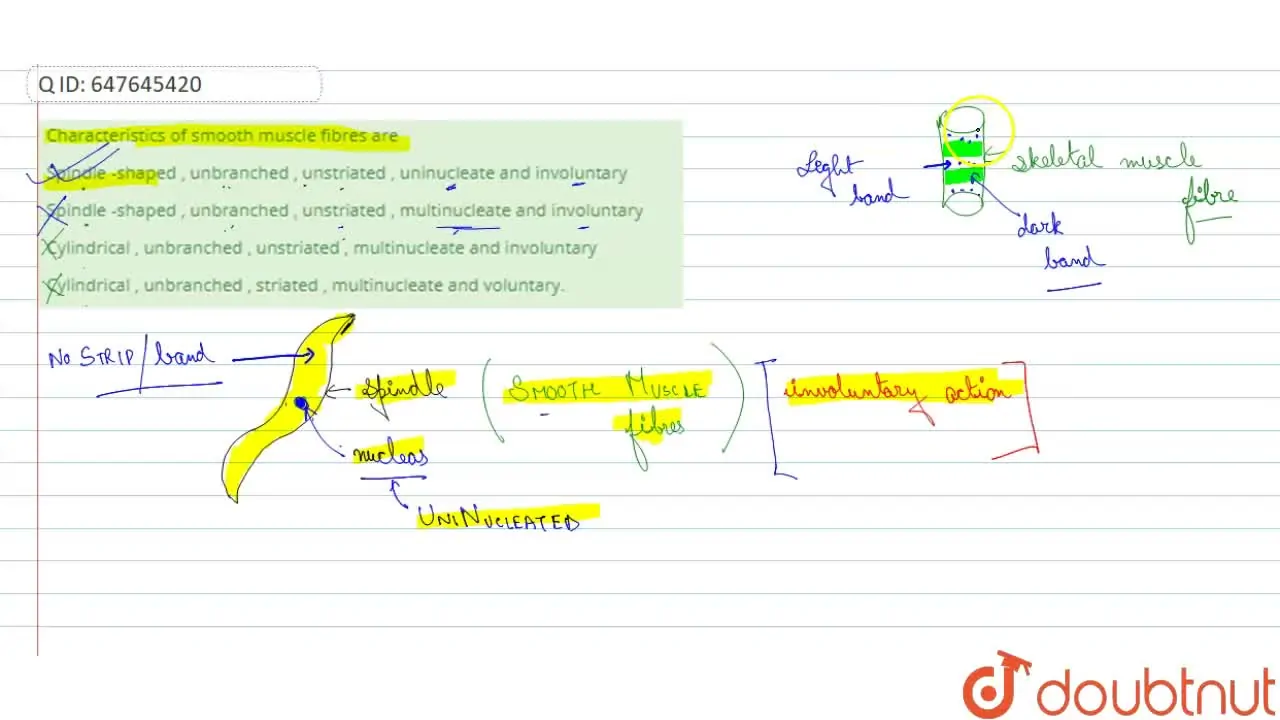 Q ID: 647645420
Characteristics of smooth muscle fibres are
Spindle -shaped , unbranched , unstriated , uninucleate and involuntary
Spindle -shaped , unbranched , unstriated , multinucleate and involuntary
Cylindrical , unbranched , unstriated , multinucleate and involuntary
Cylindrical , unbranched , striated , multinucleate and voluntary.
Leght
band
skeletal muscle
fibre
dark
band
No STRIP/band
spindle
(SMOOTH MUSCLE
fibres)
[involuntary action]
nucleas
UNINUCLEATED
doubtnut